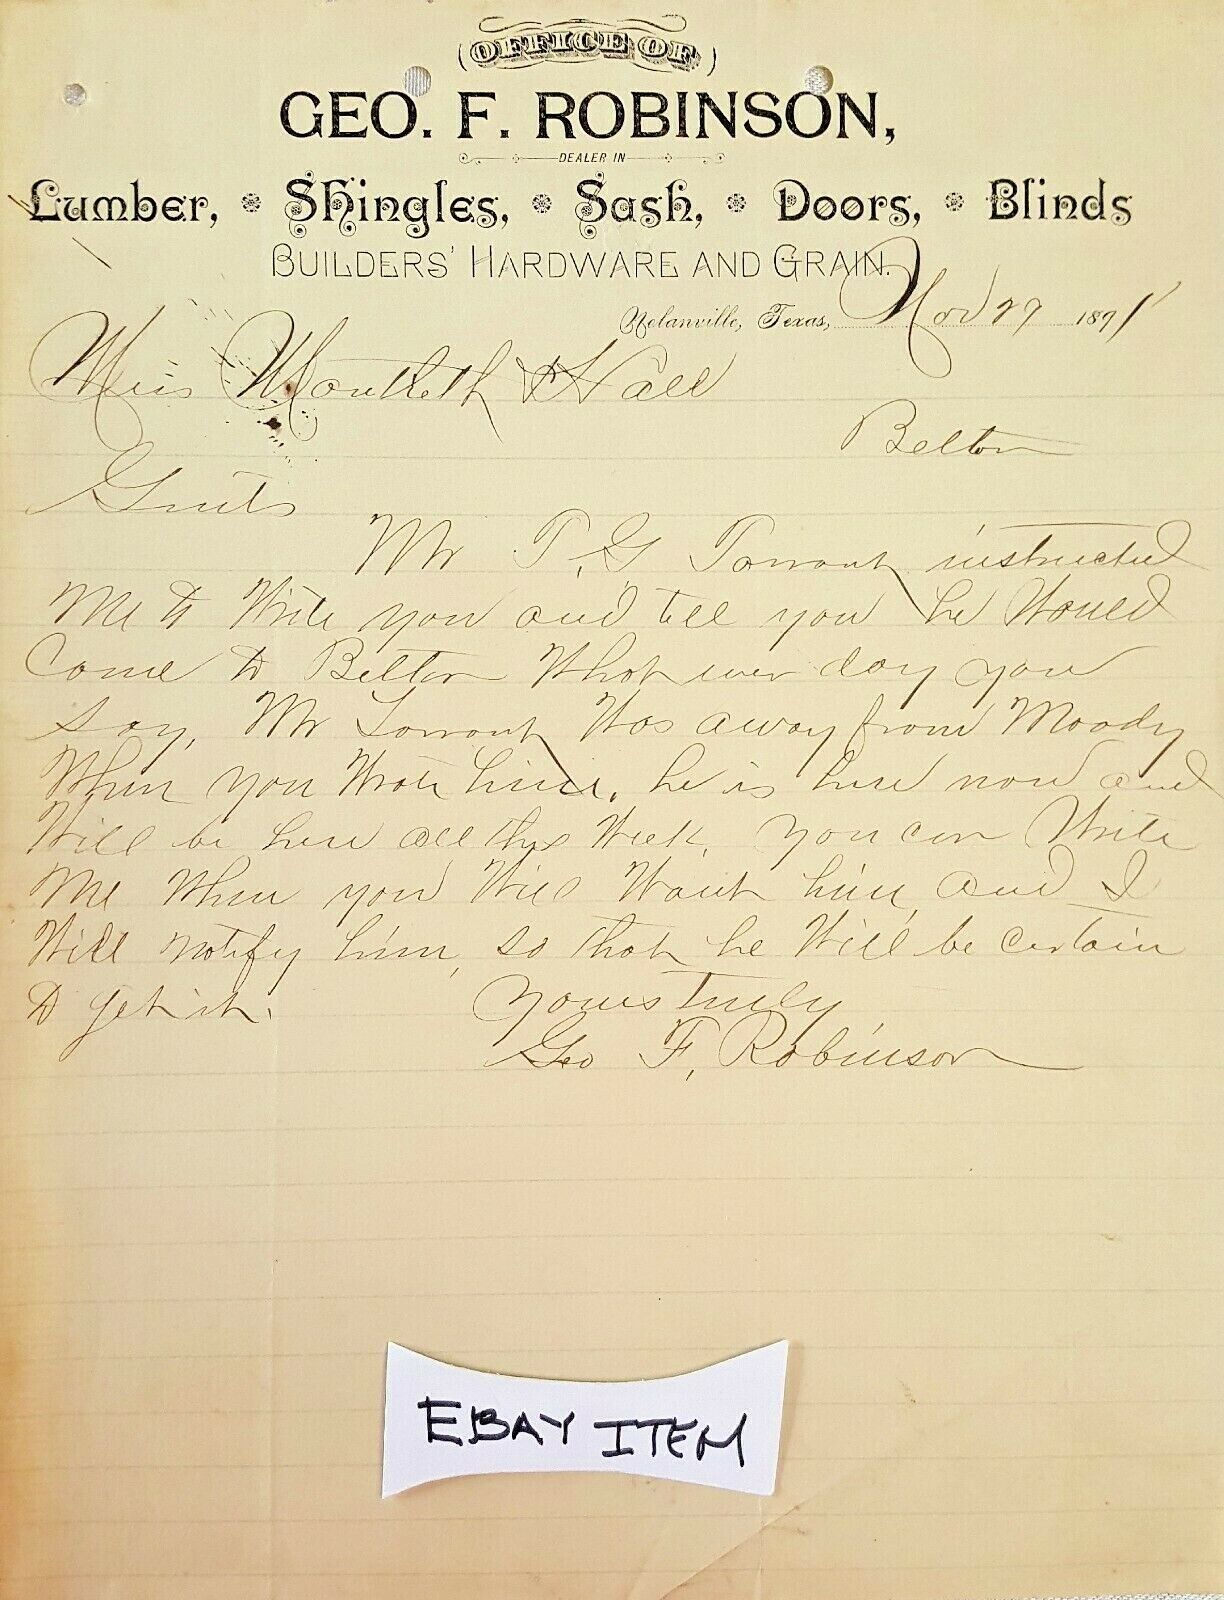 OFFICE OF
GEO. F. ROBINSON,
DEALER IN
Lumber, Shingles, Sash, Doors, Blinds
BUILDERS' HARDWARE AND GRAIN.
Nolanville, Texas, Nov 29 1891
Mess Monteith & Hall
Belton
Gents
Mr T. G. Tarrant instructed
Me to Write you and tell you he Would
Come to Belton What ever day you
Say, Mr Tarrant Was away from Moody
When you Wrote him. he is here now and
Will be here all this Week, you can Write
Me When you Will Want him, and I
Will notify him, so that he Will be certain
to get it.
Yours Truly
Geo F. Robinson
EBAY ITEM